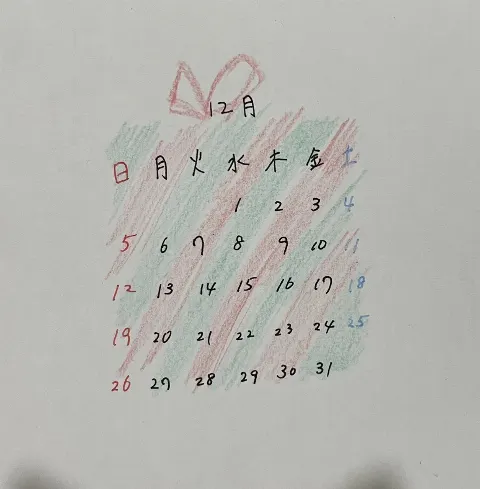 12月
日 月 火 水 木 金 土
1 2 3 4
5 6 7 8 9 10 11
12 13 14 15 16 17 18
19 20 21 22 23 24 25
26 27 28 29 30 31